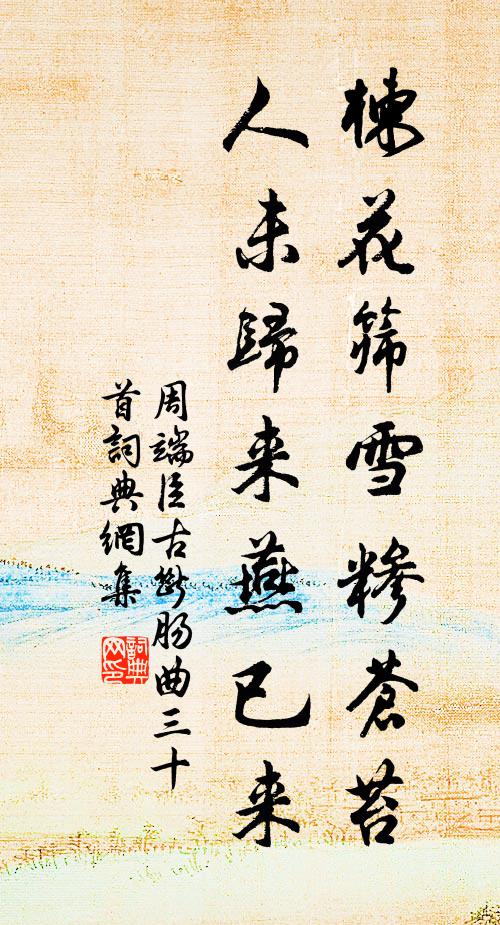 楝花筛雪糁苍苔
人未歸来燕已来
周端臣古断肠曲三十
首詞典網集
詞典
网印